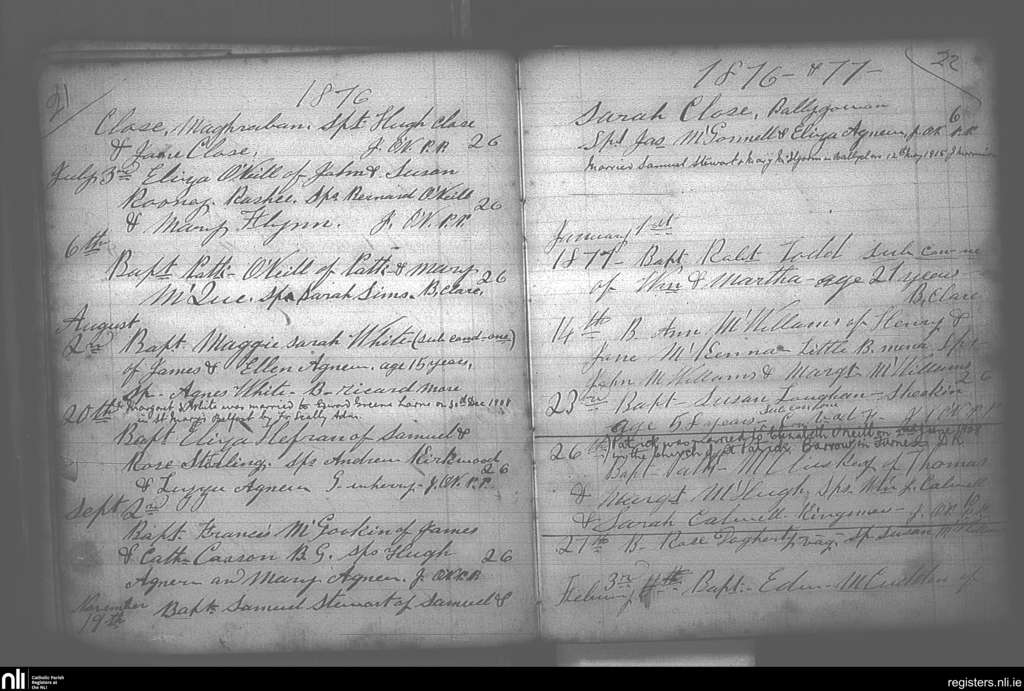 21
1876
Close, Maghraban. Sps Hugh Close
& Jane Close. J. O'N. P.P. 26
July 3rd Eliza O'Neill of John & Susan
Rooney. Rashee. Sps Bernard O'Neill
& Mary Flynn. J. O'N. P.P. 26
6th
Bapt Path- O'Neill of Path- & Mary
M'Que. Sps Sarah Sims. B. Clare. 26
August
2nd Bapt Maggie Sarah White (sub cond-one)
of James & Ellen Agnew. age 15 years.
Sp- Agnes White - B- ricard more
20th Margaret S White was married to Greene Larne on 30th Dec 1908
in St Mary's Belfast by Fr Scally Adm.
Bapt Eliza Hefran of Samuel &
Rose Sterling. Sps Andrew Kirkwood
& Lizzie Agnew J. O'N. P.P. 26
Sept 2nd
Bapt Francis M'Gookin of James
& Cath- Casson B.G. Sps Hugh 26
Agnew and Mary Agnew. J. O'N. P.P.
November
19th Bapt Samuel Stewart of Samuel &
22
1876 - & 77 -
Sarah Close, Ballygowan 6
Sps Jas M'Connell & Eliza Agnew, J. O'N. P.P.
Married Samuel Stewart & Mary 12th May 1915
January 1st
1877 - Bapt Robt Todd sub con-ne
of Wm & Martha - age 21 years
B. Clare
14th B. Ann M'Williams of Henry &
Jane M'Kenna - Little B. Sps-
John M'Williams & Margt- M'Williams
23rd Bapt - Susan Loughan - 26
sub condne
age 58 years. J. O'N. P.P.
26th Patrick was married to O'Neill on June 1908
in the Church of St Patrick Barrow in Furness
Bapt Path- M'Cluskey of Thomas
& Margt M'Hugh, Sps. Wm J. Calwell
& Sarah Calwell - Kingsmoss - J. O'N. P.P.
27th B- Rose Dogherty vag. Sp Susan
3rd
February 4th Bapt - Edw- of
nli
Catholic Parish
Registers at
the NLI
registers.nli.ie